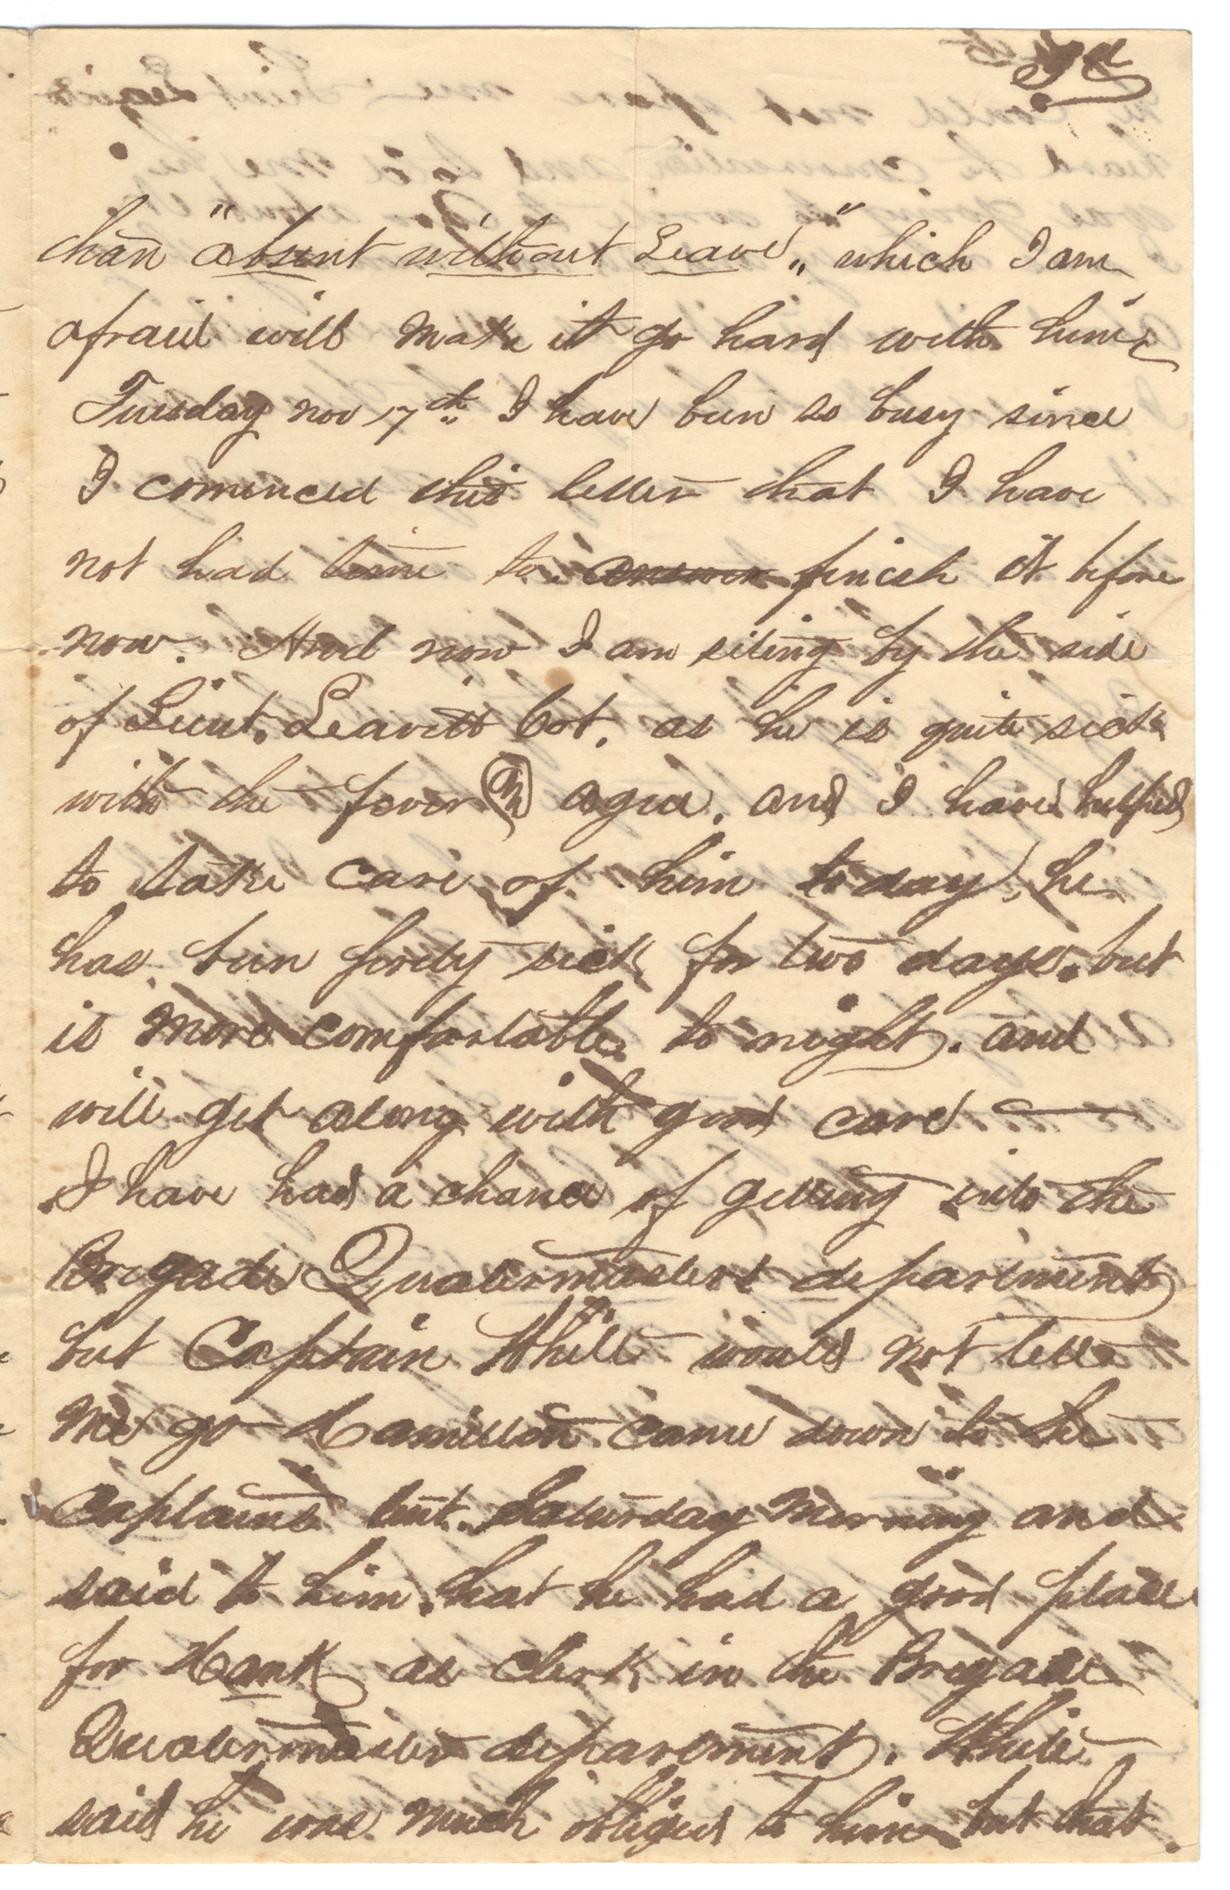 than "absent without Leave", which I am
afraid will make it go hard with him,
Tuesday nov 17th I have been so busy since
I comenced this letter that I have
not had time to answer finish it before
now. And now I am siting by the side
of Lieut. Leavitt Cot, as he is quite sick
with the fever & ague, and I have helped
to take care of him to day, he
has been prety sick for two days, but
is more comfortable to night. and
will get along with good care
I have had a chance of getting into the
Brigade Quatermasters department
but Captain White would not let
me go Hamilton came down to the
Captains tent Saturday morning and
said to him that he had a good place
for Hank as clerk in the Brigade
Quatermaster department. White
said he was much obliged to him but that